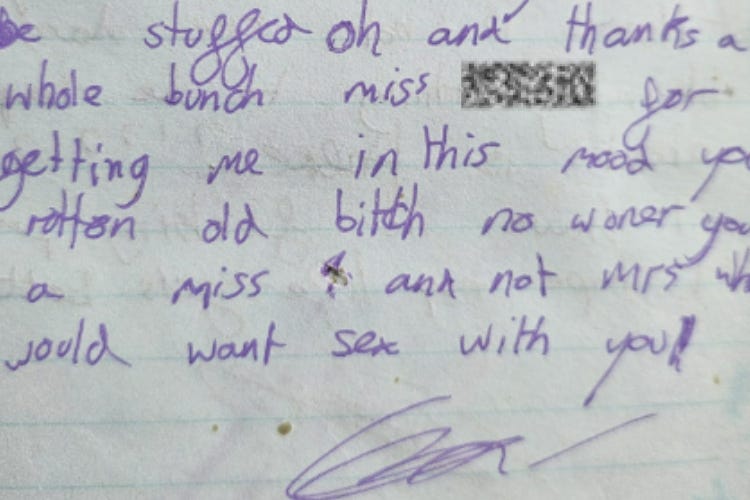 be stuffed oh and thanks a
whole bunch miss for
getting me in this mood yo
rotten old bitch no woner you
a miss and not mrs wh
would want sex with you!